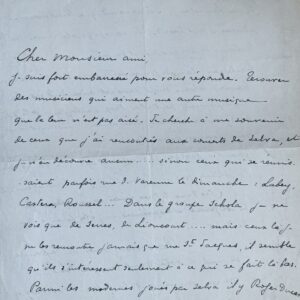 Cher Monsieur ami
Je suis fort embarrassé pour vous répondre. Trouver
des musiciens qui aiment une autre musique
que la leur n'est pas aisé. Je cherche à me souvenir
de ceux que j'ai rencontrés aux concerts de Selva, et
je n'en découvre aucun... sinon ceux qui se réunis-
saient parfois rue de Varenne le dimanche : Labey,
Castera, Roussel... Dans le groupe Schola je ne
vois que de Serres, de Lioncourt.... mais ceux-là, je
ne les rencontre jamais que rue St Jacques, il semble
qu'ils s'intéressent seulement à ce qui se fait là-bas.
Parmi les modernes joués par Selva il y a Roger Ducasse